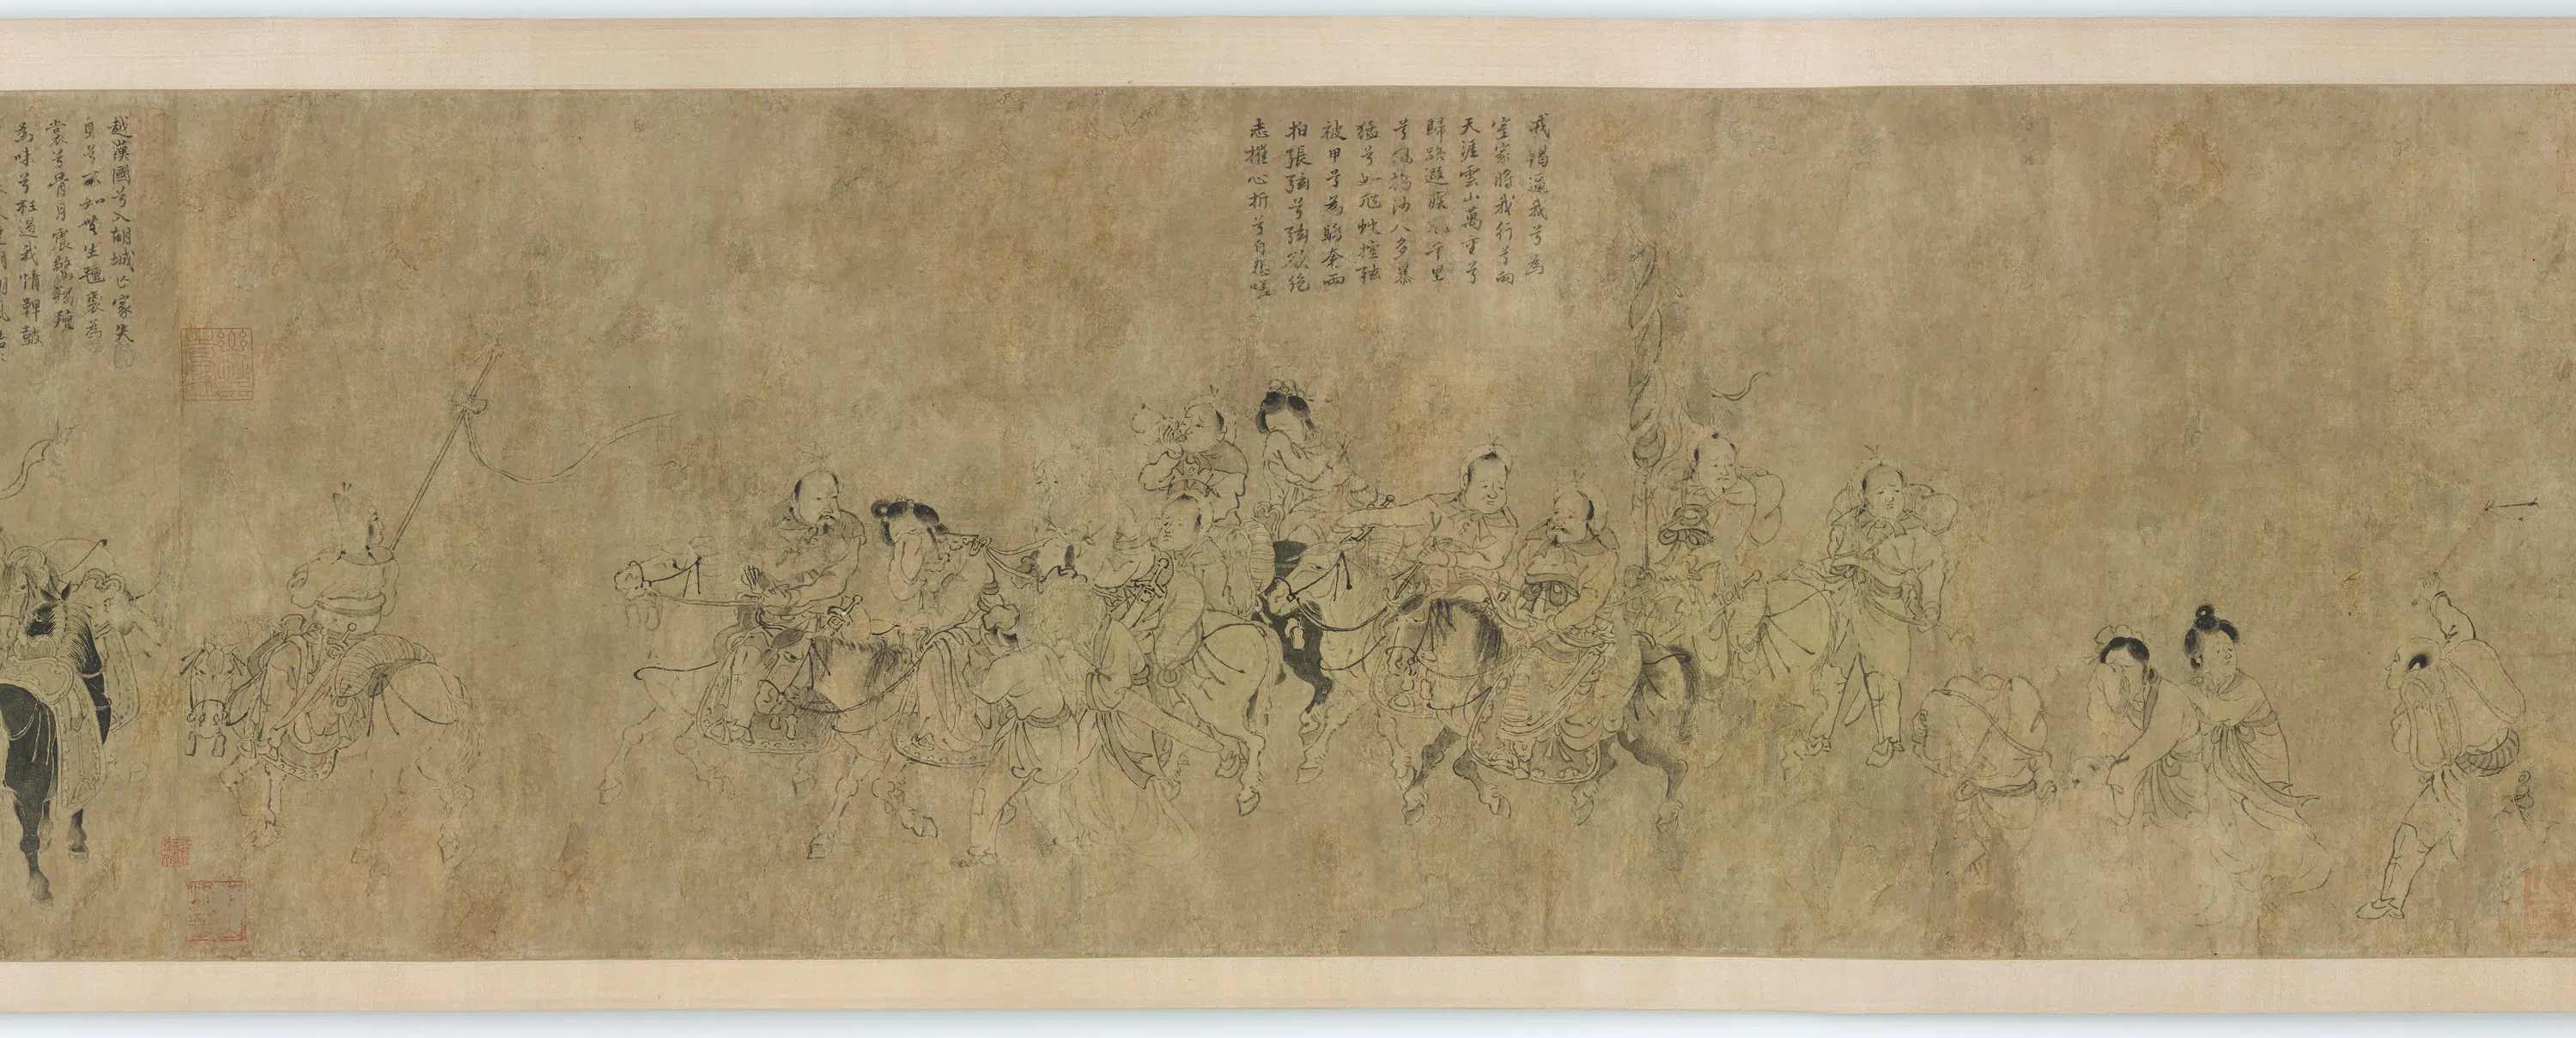 戎羯逼我兮為
室家將我行兮向
天涯雲山萬重兮
歸路遐疾風千里
兮風揚沙人多暴
猛兮如虺蛇控弦
被甲兮為驕奢兩
拍張弦兮弦欲絕
志摧心折兮自悲嗟
越漢國兮入胡城亡家失
身兮不如無生氈裘為
裳兮骨肉震驚羯羶
為味兮枉遏我情鞞鼓